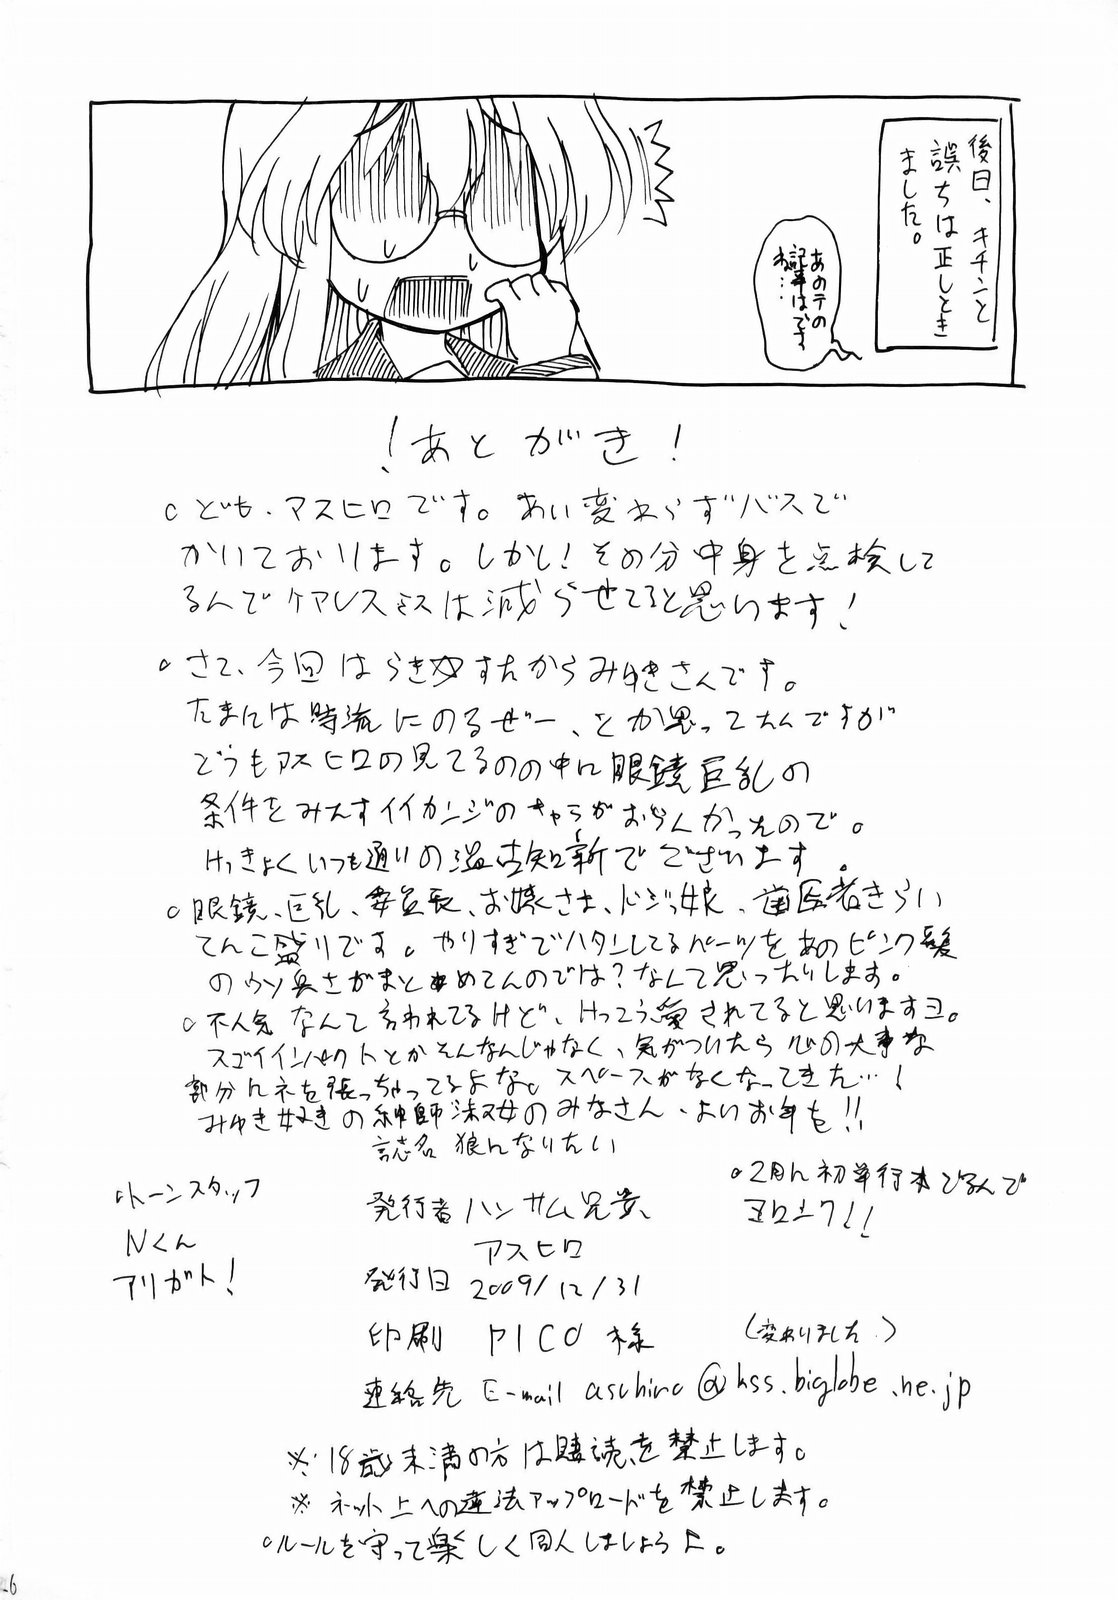 後日、キチンと
誤ちは正しとき
ました。
あのテの
記事はですね…
！あとがき！
○ども、アスヒロです。あい変わらずバスで
かいております。しかし！その分中身を点検して
るんでケアレスミスは減らせてると思います！
○さて、今回はらき☆すたからみゆきさんです。
たまには時流にのるぜー、とか思ってたんですが
どうもアスヒロの見てるのの中に眼鏡巨乳の
条件をみたすイイカンジのキャラがおらんかったので。
けっきょくいつも通りの温故知新でございます。
○眼鏡、巨乳、委員長、お嬢さま、ドジっ娘、歯医者きらい
てんこ盛りです。やりすぎでハタンしてるパーツをあのピンク髪
のウソ臭さがまとめてんのでは？なんて思ったりします。
○不人気なんて言われてるけど、けっこう愛されてると思いますヨ。
スゴイインパクトとかそんなんじゃなく、気がついたら心の大事な
部分にネを張っちゃってるよな。スペースがなくなってきた…！
みゆき好きの紳師淑女のみなさん、よいお年を！！
誌名 狼になりたい
○トーンスタッフ
Nくん
アリガト！
発行者 ハンサム兄貴、
アスヒロ
○2月に初単行本でるんで
ヨロシク！！
発行日 2009/12/31
印刷 PICO様
(変わりました。)
連絡先 E-mail asuhiro@kss.biglobe.ne.jp
※18歳未満の方は購読を禁止します。
※ネット上への違法アップロードを禁止します。
○ルールを守って楽しく同人しましょうよ。